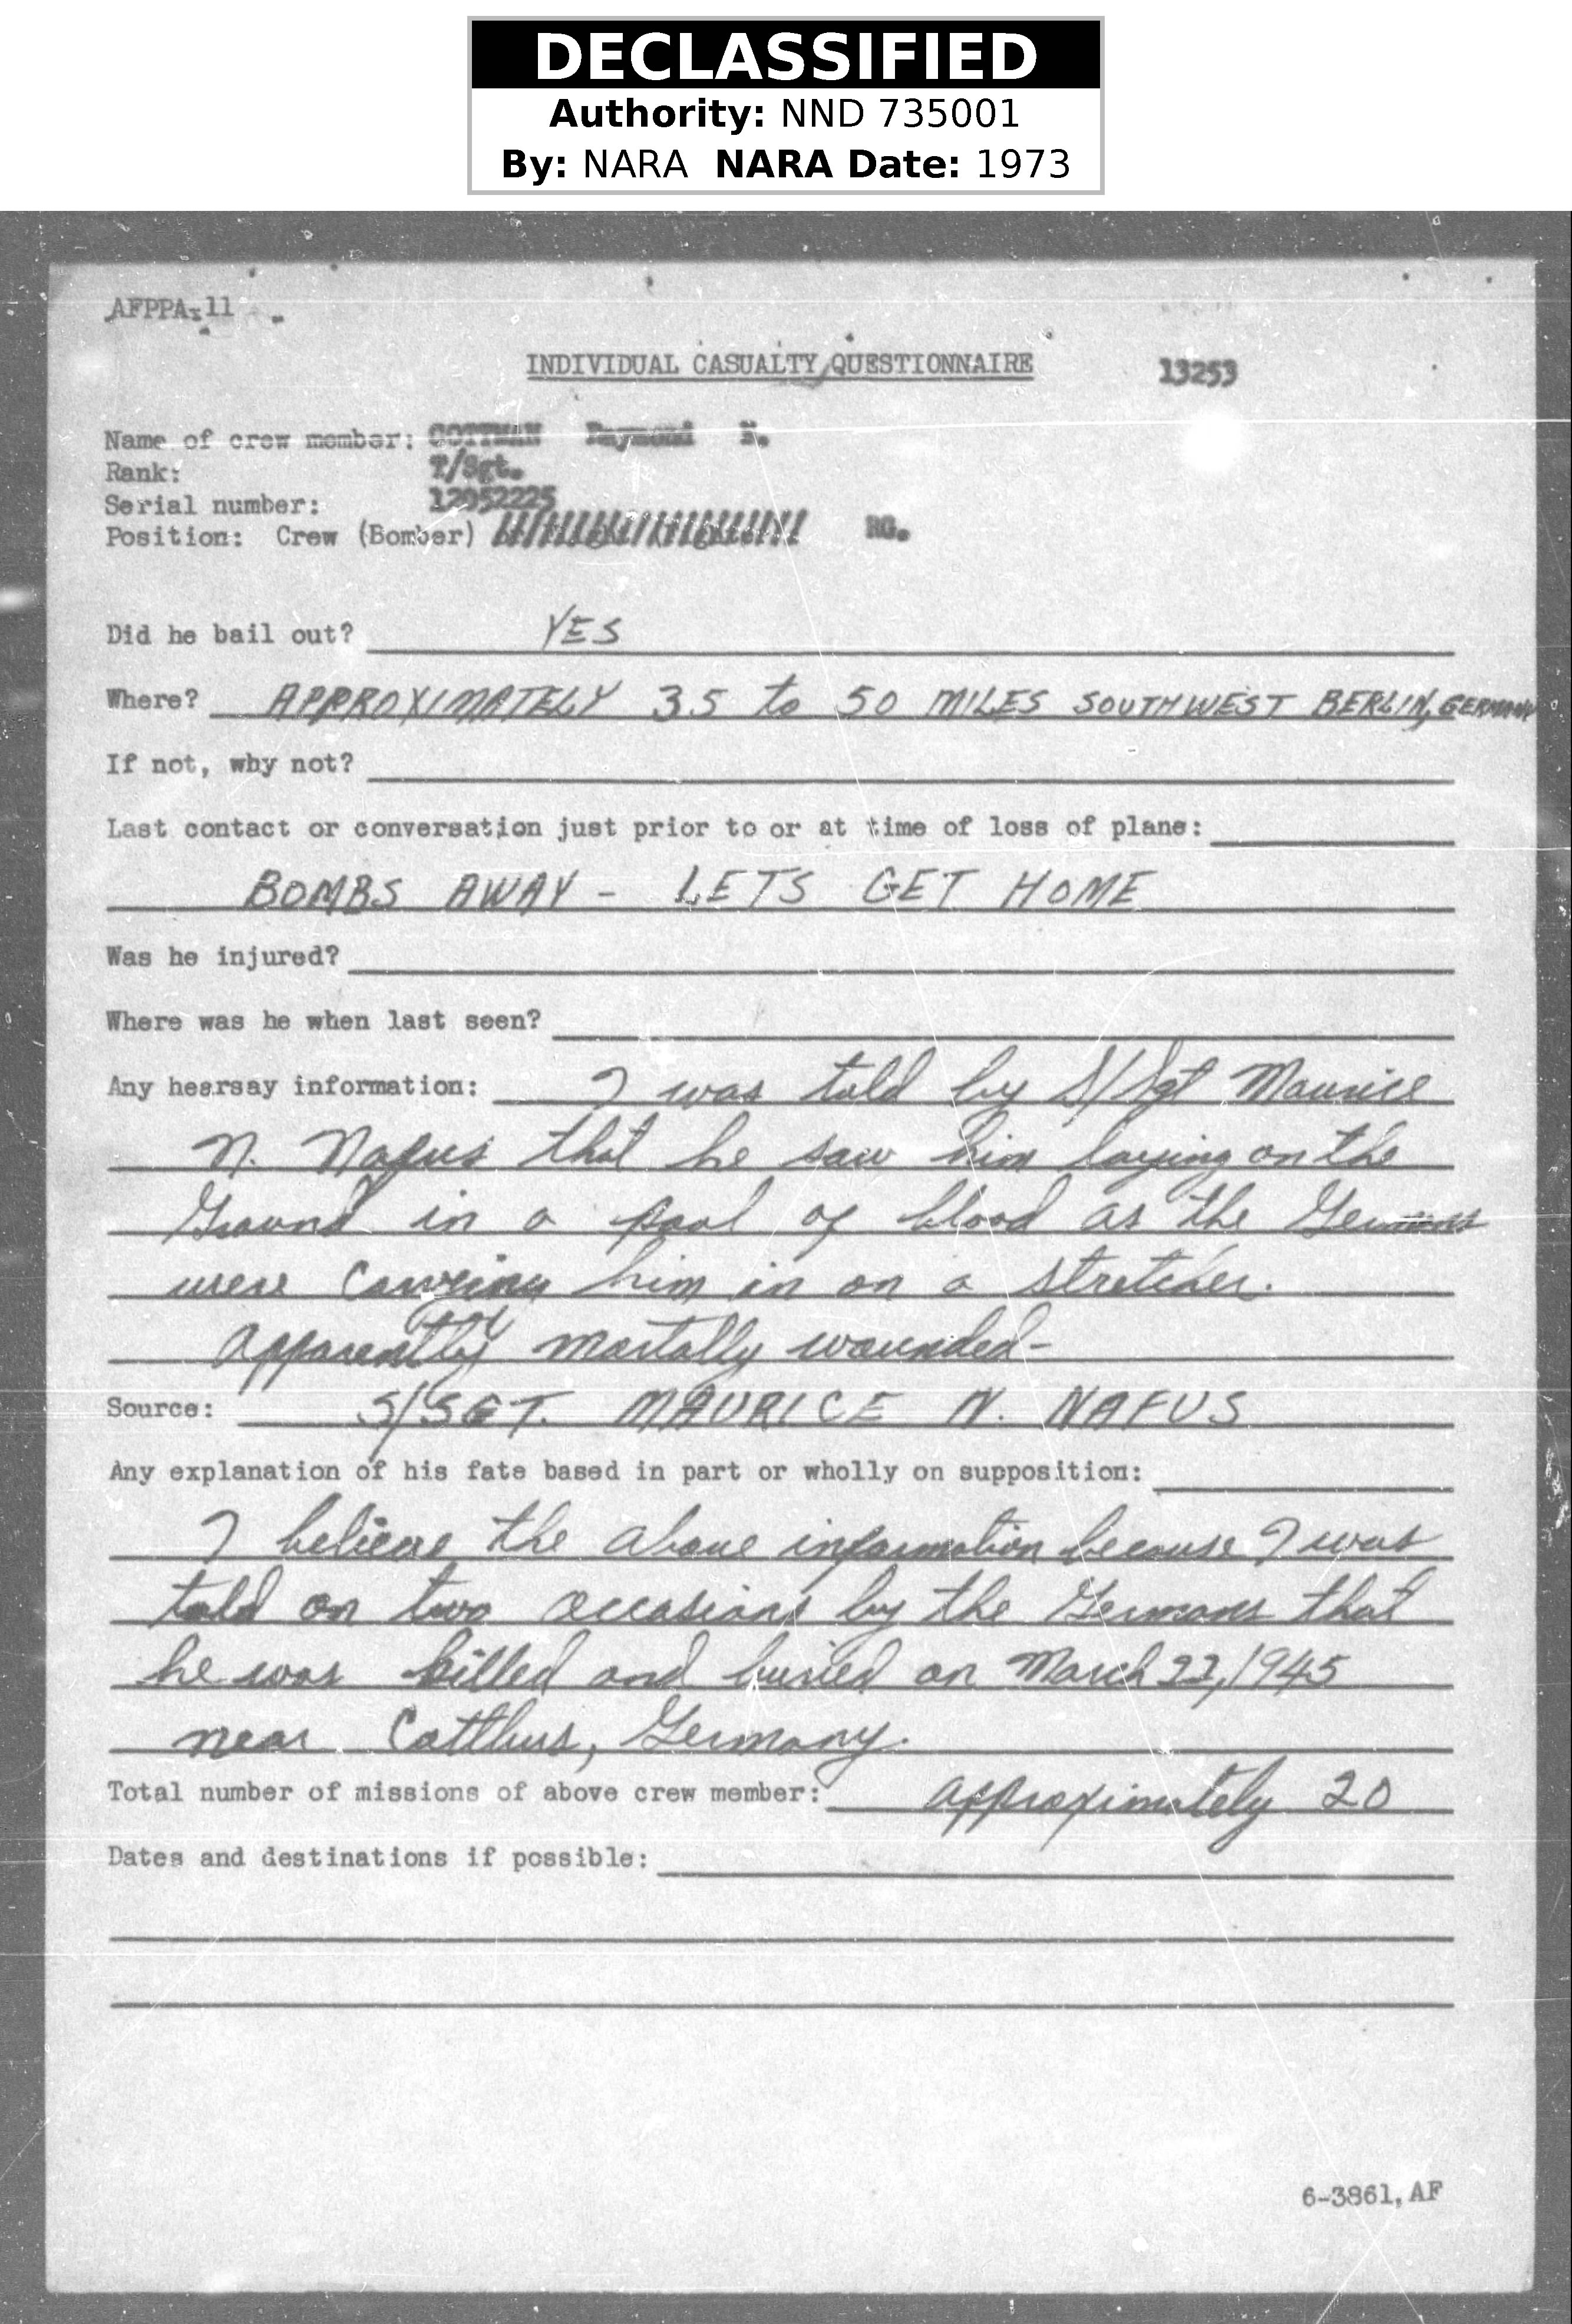 DECLASSIFIED
Authority: NND 735001
By: NARA NARA Date: 1973
AFPPA-11
INDIVIDUAL CASUALTY QUESTIONNAIRE 13253
Name of crew member: COTTMAN Raymond N.
Rank: T/Sgt.
Serial number: 12052225
Position: Crew (Bomber) RG.
Did he bail out? YES
Where? APPROXIMATELY 35 to 50 MILES SOUTHWEST BERLIN, GERMANY
If not, why not?
Last contact or conversation just prior to or at time of loss of plane:
BOMBS AWAY - LETS GET HOME
Was he injured?
Where was he when last seen?
Any hearsay information: I was told by S/Sgt Maurice
N. Nafus that he saw him laying on the
Ground in a pool of blood as the Germans
were carrying him in on a stretcher.
apparently mortally wounded-
Source: S/SGT. MAURICE N. NAFUS
Any explanation of his fate based in part or wholly on supposition:
I believe the above information because I was
told on two occasions by the Germans that
he was killed and buried on March 22, 1945
near Cottbus, Germany.
Total number of missions of above crew member: approximately 20
Dates and destinations if possible:
6-3861, AF